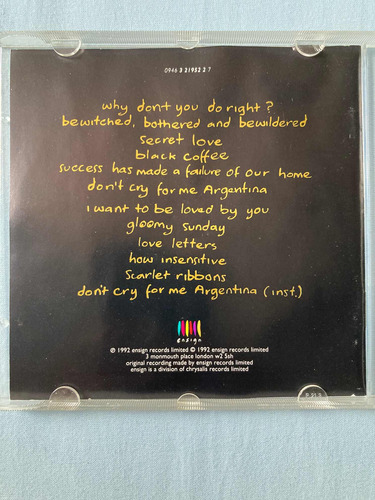 0946 3 21952 2 7
why don't you do right?
bewitched, bothered and bewildered
secret love
black coffee
success has made a failure of our home
don't cry for me Argentina
i want to be loved by you
gloomy sunday
love letters
how insensitive
scarlet ribbons
don't cry for me Argentina (inst.)
ensign
℗ 1992 ensign records limited © 1992 ensign records limited
3 monmouth place london w2 5sh
original recording made by ensign records limited
ensign is a division of chrysalis records limited